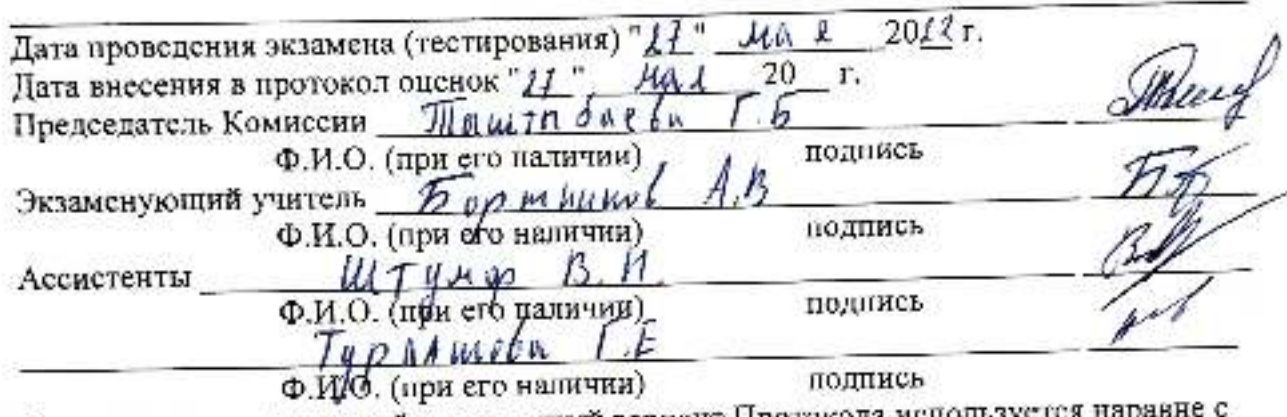 Дата проведения экзамена (тестирования) "27" мая 20 г.
Дата внесения в протокол оценок "27" мая 20 г.
Председатель Комиссии Таштыбаева Г.Б
Ф.И.О. (при его наличии) подпись
Экзаменующий учитель Бортников А.В
Ф.И.О. (при его наличии) подпись
Ассистенты Штумф В.И.
Ф.И.О. (при его наличии) подпись
Г.Е
Ф.И.О. (при его наличии) подпись
вариант Протокола используется наравне с